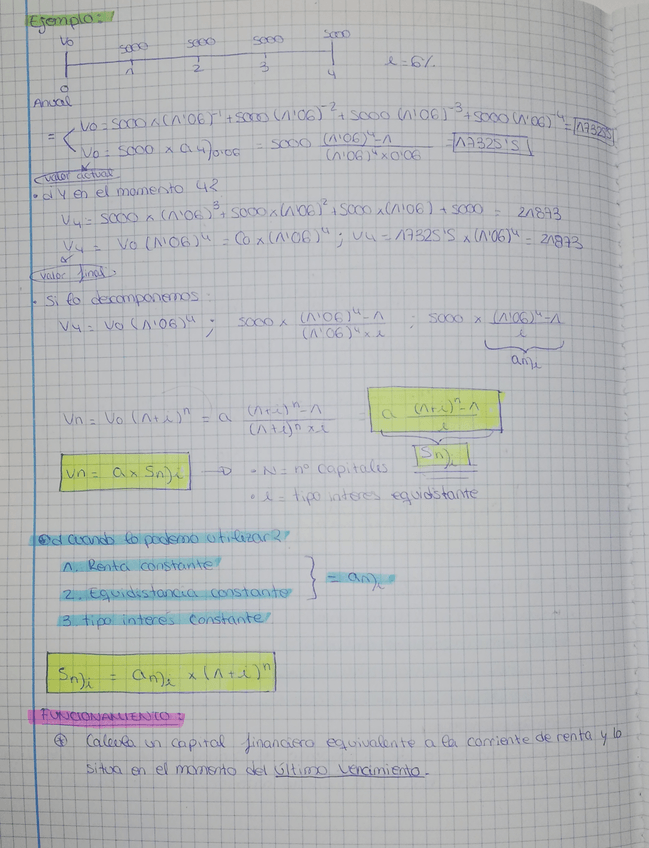 Ejemplo:
Vo 5000 5000 5000 5000
0 1 2 3 4 i = 6%
Anual
= { Vo = 5000 x (1'06)⁻¹ + 5000 (1'06)⁻² + 5000 (1'06)⁻³ + 5000 (1'06)⁻⁴ = 17325'5
Vo = 5000 x a4)0'06 = 5000 (1'06)⁴-1 / (1'06)⁴ x 0'06 = 17325'5
valor actual
· ¿Y en el momento 4?
V4 = 5000 x (1'06)³ + 5000 x (1'06)² + 5000 x (1'06) + 5000 = 21873
V4 = Vo (1'06)⁴ = Co x (1'06)⁴ ; V4 = 17325'5 x (1'06)⁴ = 21873
valor final.
· Si lo descomponemos:
V4 = Vo (1'06)⁴ ; 5000 x (1'06)⁴-1 / (1'06)⁴ x i ; 5000 x (1'06)⁴-1 / i
an)i
Vn = Vo (1+i)ⁿ = a (1+i)ⁿ-1 / (1+i)ⁿ x i = a (1+i)ⁿ-1 / i
Sn)i
Vn = a x Sn)i ⇒ · N = nº capitales
· i = tipo interes equidistante
¿cuando lo podemo utilizar?
1. Renta constante
2. Equidistancia constante } = an)i
3. tipo interes constante
Sn)i = an)i x (1+i)ⁿ
FUNCIONAMIENTO:
⊕ Calcula un capital financiero equivalente a la corriente de renta y lo
situa en el momento del último vencimiento.